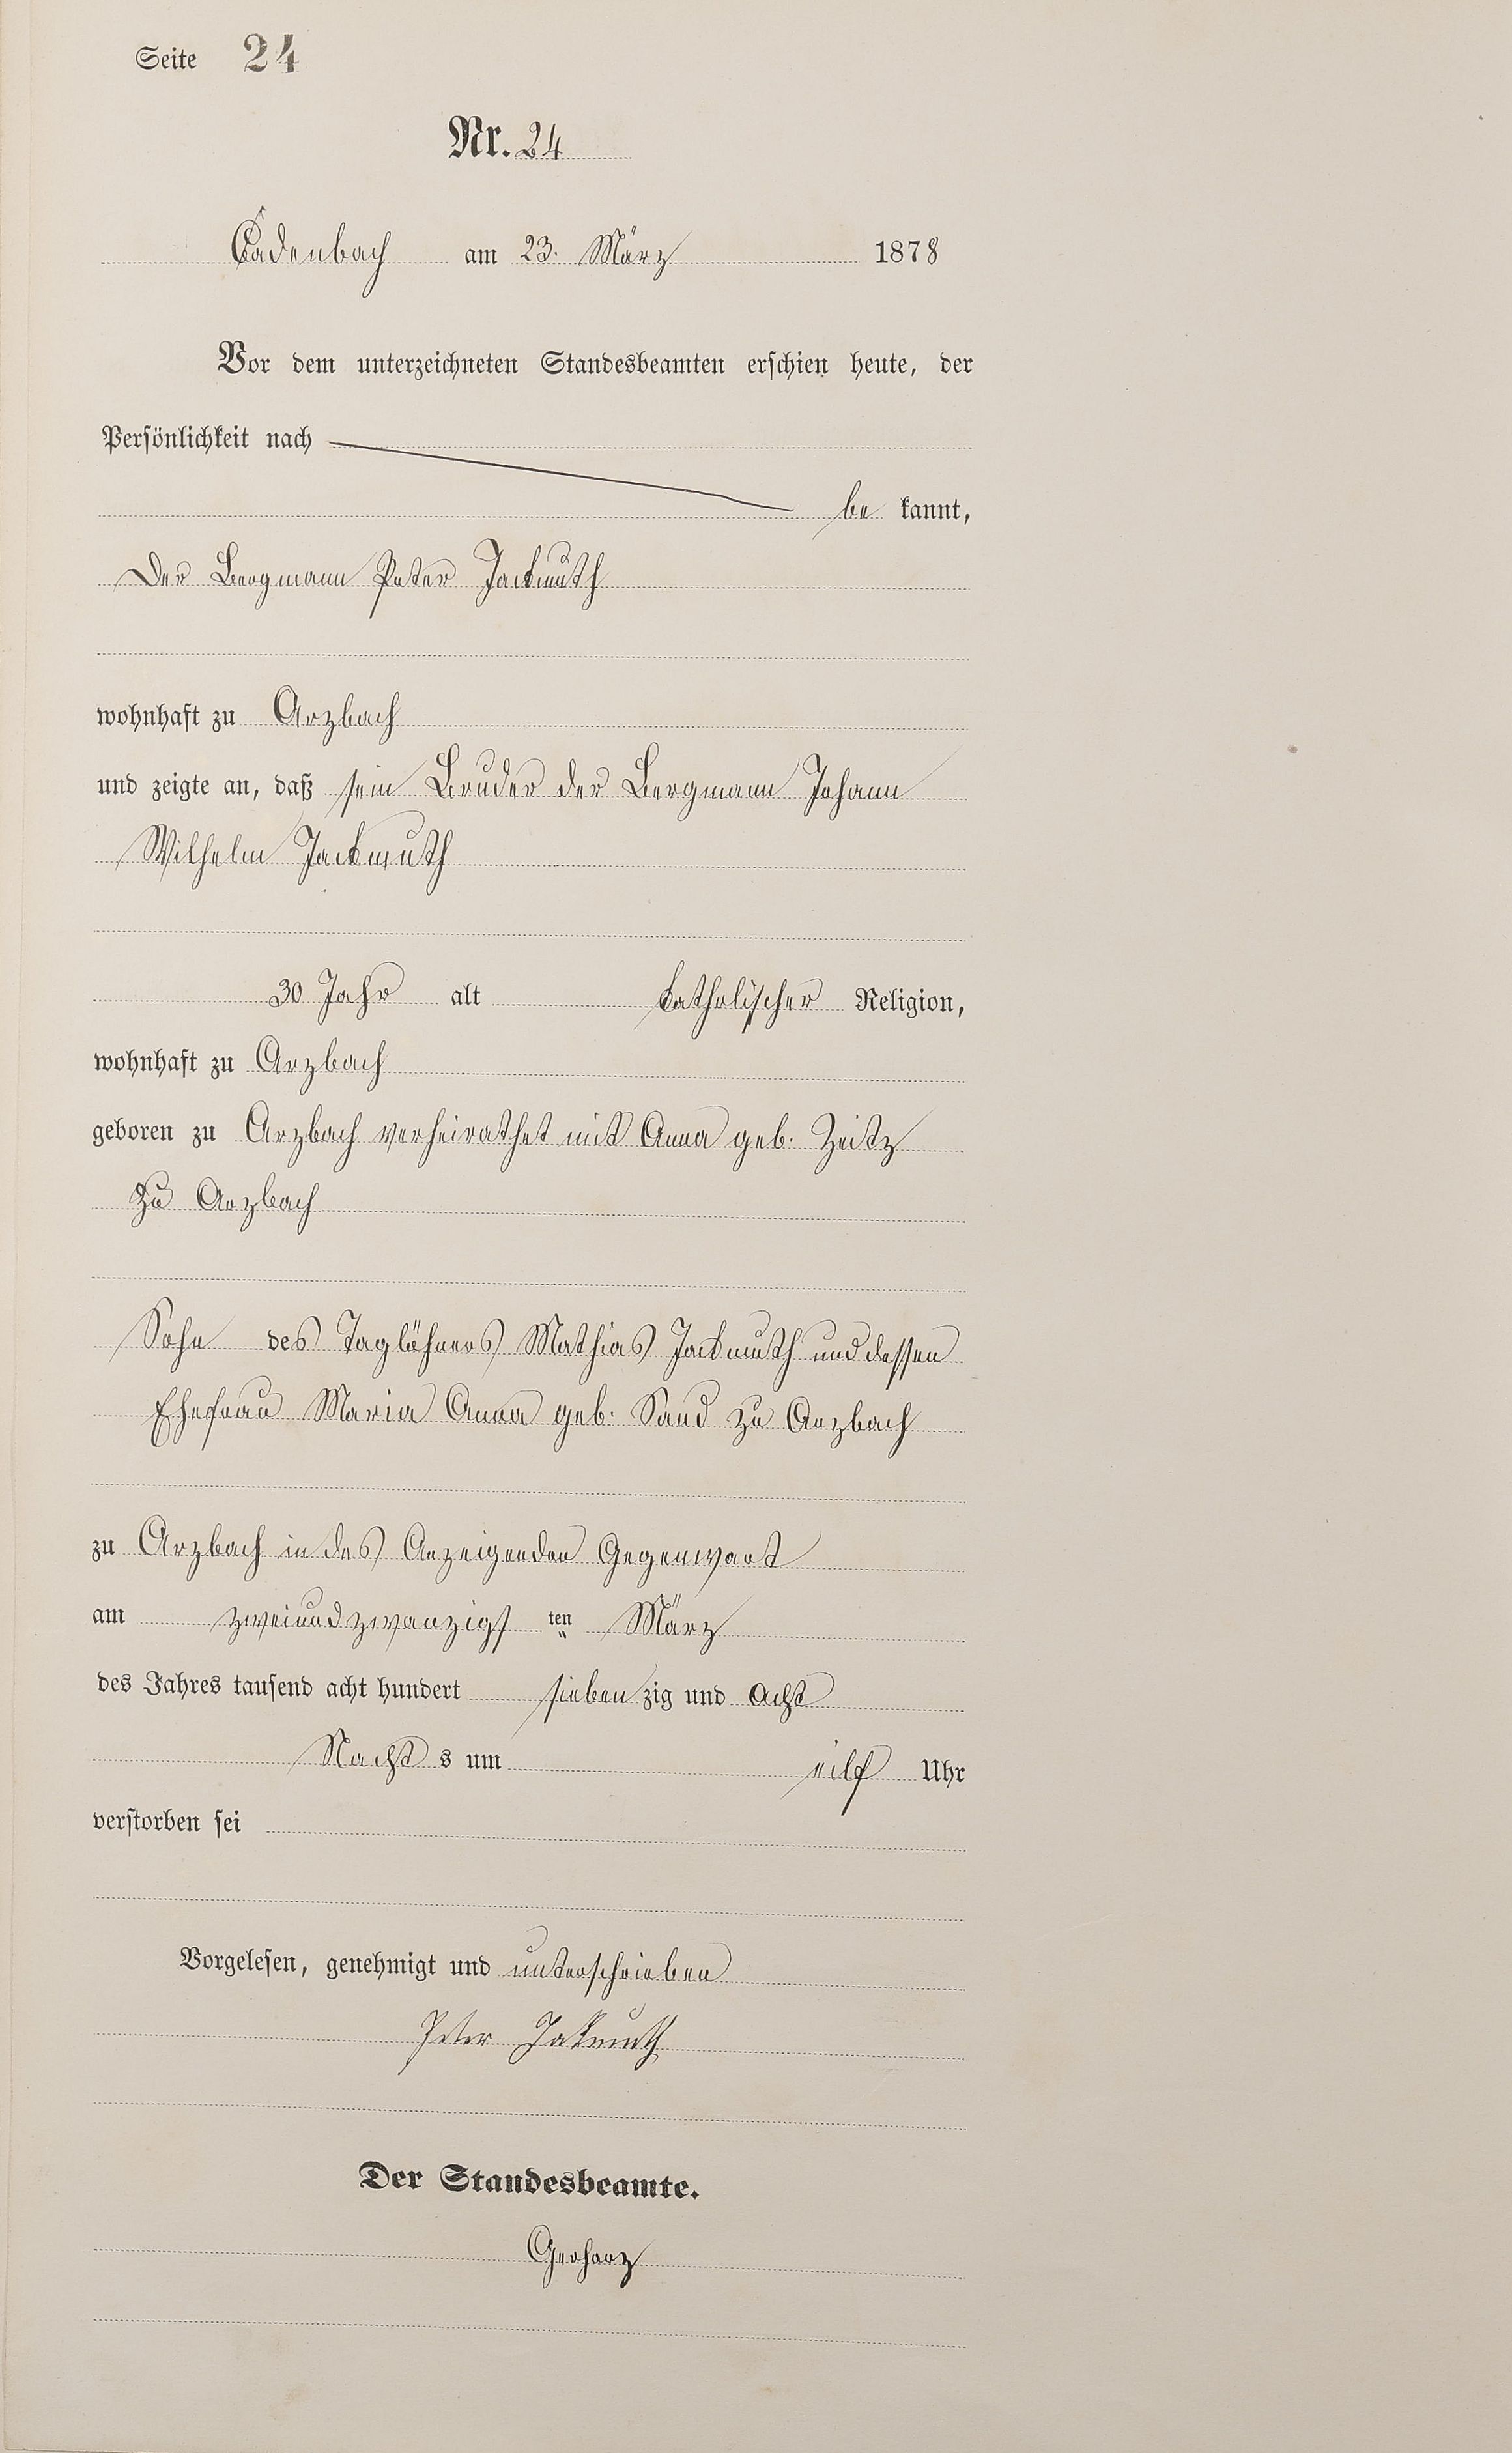 Seite 24
Nr. 24
Cadenbach am 23. März 1878
Vor dem unterzeichneten Standesbeamten erschien heute, der
Persönlichkeit nach
be kannt,
Der Bergmann Peter Jackmuth
wohnhaft zu Arzbach
und zeigte an, daß sein Bruder der Bergmann Johann
Wilhelm Jackmuth
30 Jahr alt katholischer Religion,
wohnhaft zu Arzbach
geboren zu Arzbach verheirathet mit Anna geb. Zeitz
zu Arzbach
Sohn des Taglöhners Mathias Jackmuth und dessen
Ehefrau Maria Anna geb. Sand zu Arzbach
zu Arzbach in des Anzeigenden Gegenwart
am zweiundzwanzigsten März
des Jahres tausend acht hundert siebenzig und acht
Nachts um eilf Uhr
verstorben sei
Vorgelesen, genehmigt und unterschrieben
Peter Jakmuth
Der Standesbeamte.
Gerharz